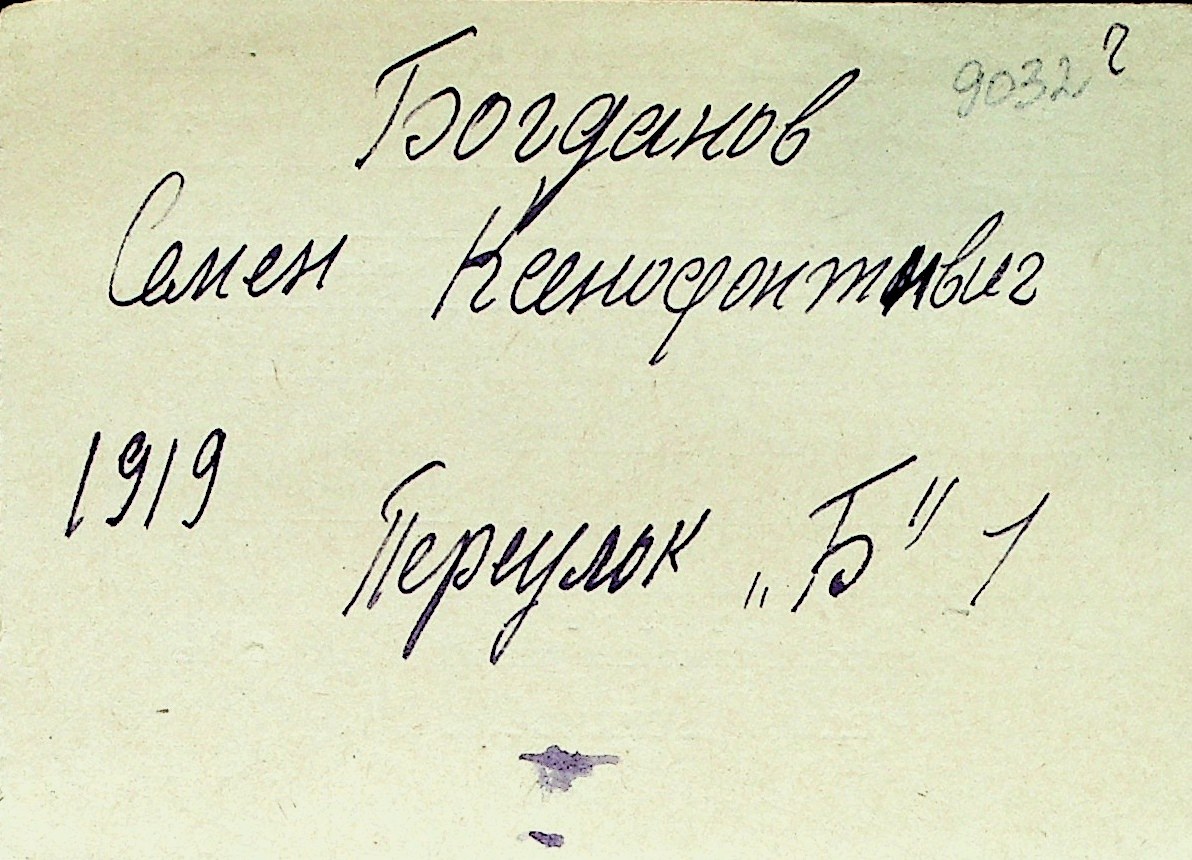 9032 г
Богданов
Семен Ксенофонтович
1919
Переулок „Б" 1